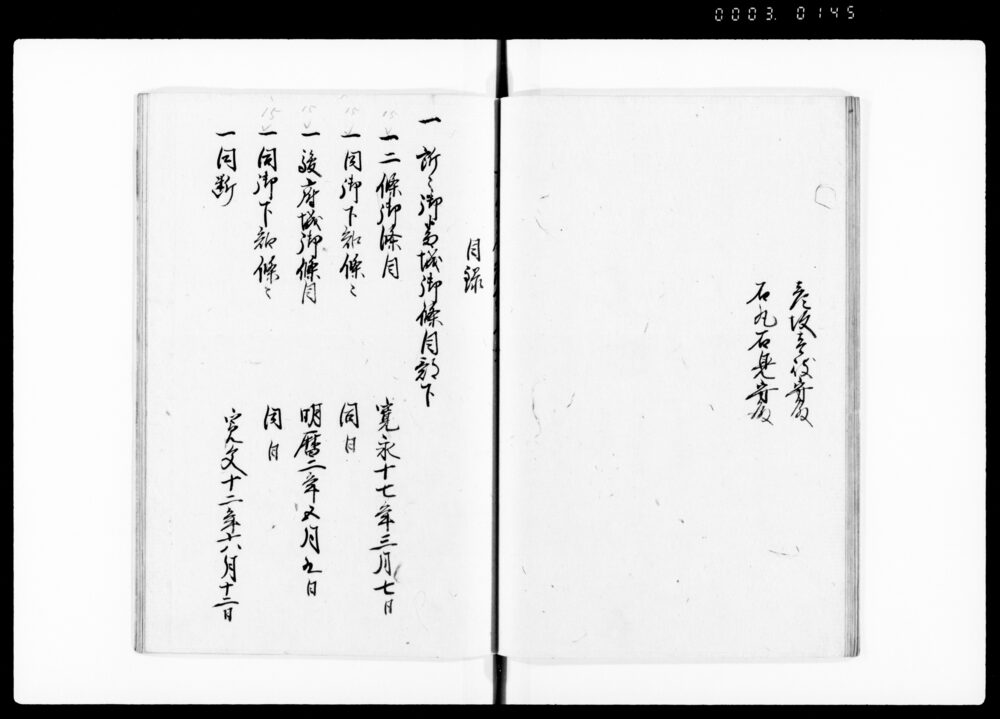 0003. 0145
彦坂壱岐守殿
石丸石見守殿
目録
一 所々御番城御條目部下
一 二條御條目 寛永十七年三月七日
一 同御下知條々 同日
一 駿府城御條目 明暦二年五月九日
一 同御下知條々 同日
一 同断 寛文十二年六月十二日
15
15
15
15